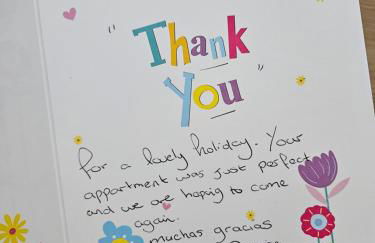 " Thank
You "
for a lovely holiday. Your
appartment was just perfect
and we are hopig to come
again.
muchas gracias